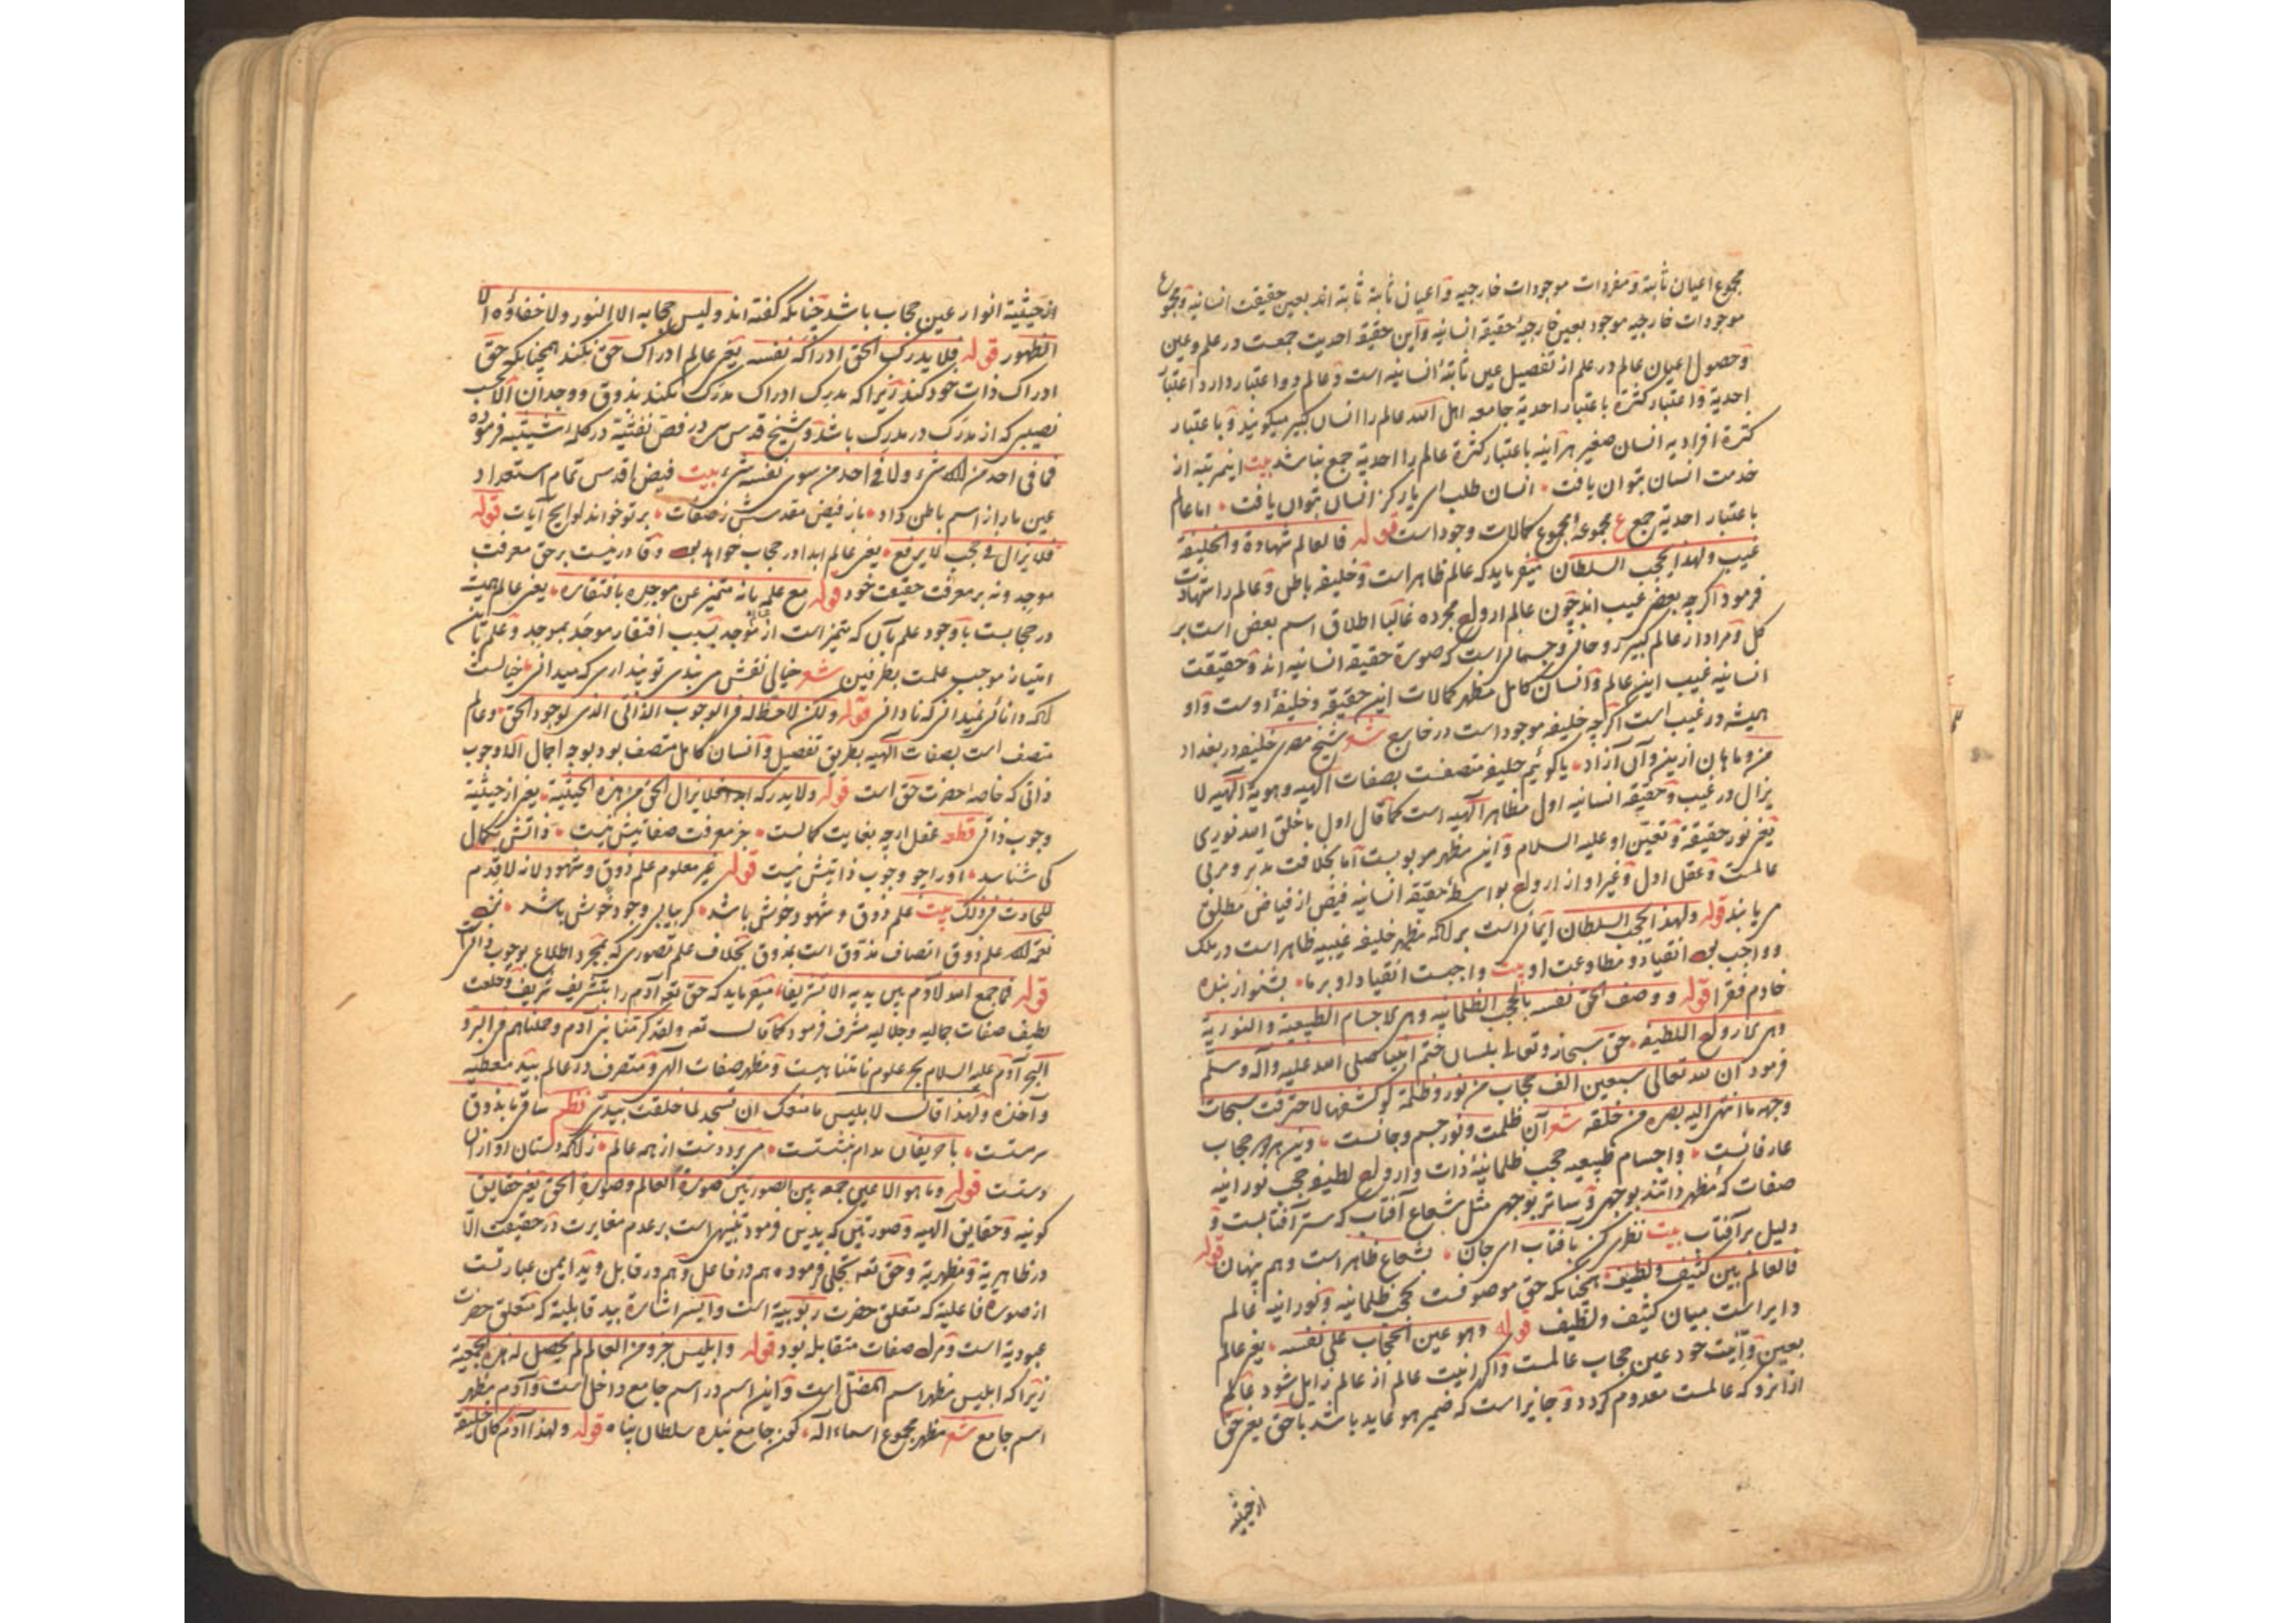 مجموع اعیان ثابتة و مفردات موجودات خارجیه و اعیان ثابتة ثابتة اند بعین حقیقت انسانیه و مجموع
موجودات خارجیه موجود بعین خارجیهٔ حقیقه انسانیه و این حقیقه احدیت جمعت در علم و عین
و حصول اعیان عالم در علم از تفصیل عین ثابتهٔ انسانیه است و عالم دو اعتبار دارد اعتبار
احدیة و اعتبار کثرة باعتبار احدیة جامعه اهل الله عالم را انسان کبیر میگویند و باعتبار
کثرة افرادیه انسان صغیر هر آینه باعتبار کثرة عالم را احدیة جمع نباشد بیت اینمرتبه از
خدمت انسان بتوان یافت انسان طلب ای یار کز انسان بتوان یافت اما عالم
باعتبار احدیة جمع ع مجموعه مجموع کمالات وجود است قوله فالعالم شهادة والخلیفة
غیب ولهذا یحجب السلطان میفرماید که عالم ظاهر است و خلیفه باطن و عالم را شهادت
فرمود اگرچه بعض غیب اند چون عالم ارواح مجرده غالبا اطلاق اسم بعض است بر
کل و مراد از عالم کبیر روحانی و جسمانی است که صورة حقیقه انسانیه اند و حقیقت
انسانیه غیب این عالم و انسان کامل مظهر کمالات این حقیقه و خلیفهٔ اوست و او
همیشه در غیب است اگرچه خلیفه موجود است در خارج شعر شیخ مصری خلیفه در بغداد
من و ماهان ازین و آن آزاد یا گوئیم خلیفه متصفست بصفات الهیه و هویة الهیه لا
یزال در غیب و حقیقه انسانیه اول مظاهر الهیه است کما قال اول ما خلق الله نوری
یعنی نور حقیقة و تعین او علیه السلام و این مظهر مربوبست اما بخلافت مدبر و مربی
عالمست و عقل اول و غیر او از ارواح بواسطهٔ حقیقه انسانیه فیض از فیاض مطلق
می یابند قوله ولهذا یحجب السلطان ایمائی است برآنکه مظهر خلیفه غیبیه ظاهر است در ملک
و واجب بود انقیاد و مطاوعت او بیت واجبست انقیاد او بر ما بشنو از بنده
خادم فقرا قوله ووصف الحق نفسه بالحجب الظلمانیه وهی الاجسام الطبیعیة والنوریة
وهی الارواح اللطیفه حق سبحانه و تعالی بلسان ختم انبیا صلی الله علیه وآله وسلم
فرمود ان لله تعالی سبعین الف حجاب من نور وظلمة لو کشفها لاحترقت سبحات
وجهه ما انتهی الیه بصره من خلقه شعر آن ظلمت و نور جسم و جانست وین هر دو حجاب
عارفانست و اجسام طبیعیه حجب ظلمانیهٔ ذات و ارواح لطیفه حجب نورانیه
صفات که مظهر ذاتند بوجهی و ساتر بوجهی مثل شعاع آفتاب که ستر آفتابست و
دلیل بر آفتاب بیت نظری کن بآفتاب ای جان بشعاع ظاهر است و هم پنهان قوله
فالعالم بین کثیف ولطیف همچنانکه حق موصوفست بحجب ظلمانیه و نورانیه عالم
دایر است میان کثیف و لطیف قوله وهو عین الحجاب علی نفسه یعنی عالم
بعین و انیت خود عین حجاب عالمست و اگر انیت عالم از عالم زایل شود عالم
از آنرو که عالمست معدوم گردد و جایز است که ضمیر هو عاید باشد باحق یعنی حق
از حیثیة
از حیثیة انوار عین حجاب باشد چنانکه گفته اند ولیس حجابه الا النور ولا خفاؤه الا
الظهور قوله فلا یدرک الحق ادراکه نفسه یعنی عالم ادراک حق نکند همچنانکه حق
ادراک ذات خود کند زیرا که مدرِک ادراک مدرَک نکند بذوق و وجدان الا بحسب
نصیبی که از مدرَک در مدرِک باشد و شیخ قدس سره در فص نفثیة در کلمهٔ شیثیه فرموده
فما فی احد من الله شیء ولا فی احد من سوی نفسه شیء بیت فیض اقدس تمام استعداد
عین ما را ز اسم باطن داد باز فیض مقدسش ز صفات بر تو خواند لوایح آیات قوله
فلا یزال فی حجب لا یرفع یعنی عالم ابدا در حجاب خواهد بود و قادر نیست بر حق معرفت
موجد و نه بر معرفت حقیقت خود قوله مع علمه بانه متمیز عن موجده بافتقاره یعنی عالم همیشه
در حجابست با وجود علم بآن که متمیز است از موجد بسبب افتقار موجَد بموجد و علم تا این
امتیاز موجب علمست بطرفین شعر خیالی نقش می بندی تو پنداری که میدانی خیالست
آنکه دانائی نمیدانی که نادانی قوله ولکن لاحظ له فی الوجوب الذاتی الذی لوجود الحق و عالم
متصف است بصفات الهیه بطریق تفصیل و انسان کامل متصف بود بوجه اجمال الا وجوب
ذاتی که خاصهٔ حضرت حق است قوله ولا یدرکه ابدا فلا یزال الحق من هذه الحیثیة یعنی از حیثیة
وجوب ذاتی قطعه عقل ارچه بغایت کمالست جز معرفت صفاتیش نیست ذاتش بکمال
کی شناسد او را چو وجوب ذاتیش نیست قوله غیر معلوم علم ذوق وشهود لانه لا قدم
للحادث فی ذلک بیت علم ذوق و شهود خوش باشد گر بیابی وجود خوش باشد
نعمة الله علم ذوق اتصاف مذوق است بذوق بخلاف علم تصوری که بمجرد اطلاع بوجوب ذاتی است
قوله فما جمع الله لآدم بین یدیه الا تشریفا میفرماید که حق تعه آدم را بتشریف شریف و خلعت
لطیف صفات جمالیه و جلالیه مشرف فرمود کما قال تعه ولقد کرمنا بنی آدم وحملناهم فی البر و
البحر آدم علیه السلام بحر علوم نامتناهیست و مظهر صفات الهی و متصرف در عالم بید معطیه
و آخذه ولهذا قال لابلیس ما منعک ان تسجد لما خلقت بیدی نظم ساقی ما بذوق
سرمستست با حریفان مدام بنشستست می برد دست از همه عالم زانکه دستان او ازان
دستست قوله وما هو الا عین جمعه بین الصورتین صورة العالم وصورة الحق یعنی حقایق
کونیه و حقایق الهیه و صورتین که یدین فرمود تنبیهی است بر عدم مغایرت در حقیقت الا
در ظاهریة و مظهریة و حق تعه تجلی فرموده هم در فاعل و هم در قابل و ید ایمن عبارتست
از صورة فاعلیة که متعلق حضرت ربوبیة است و ایسر اشارة بید قابلیة که متعلق حضرت
عبودیة است و مراد صفات متقابله بود قوله وابلیس جزو من العالم لم یحصل له هذه الجمعیة
زیرا که ابلیس مظهر اسم المضل است و این اسم در اسم جامع داخل است و آدم مظهر
اسم جامع شعر مظهر مجموع اسماء اله کون جامع بنده سلطان پناه قوله ولهذا آدم کان خلیفة